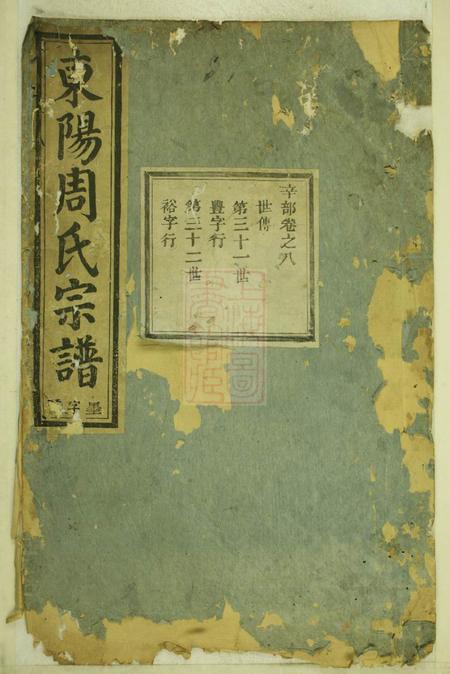 東陽周氏宗譜
墨字號
辛部卷之八
世傳
第三十一世
豐字行
第三十二世
裕字行